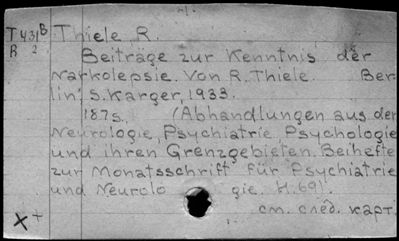 T431B Thiele, R.
R 2
Beiträge zur Kenntnis der
Narkolepsie. Von R. Thiele. Ber-
lin, S. Karger, 1933.
187s. (Abhandlungen aus der
Neurologie, Psychiatrie Psychologie
und ihren Grenzgebieten. Beihefte
zur Monatsschrift für Psychiatrie
und Neurologie. H. 69).
см. след. карт.
X+